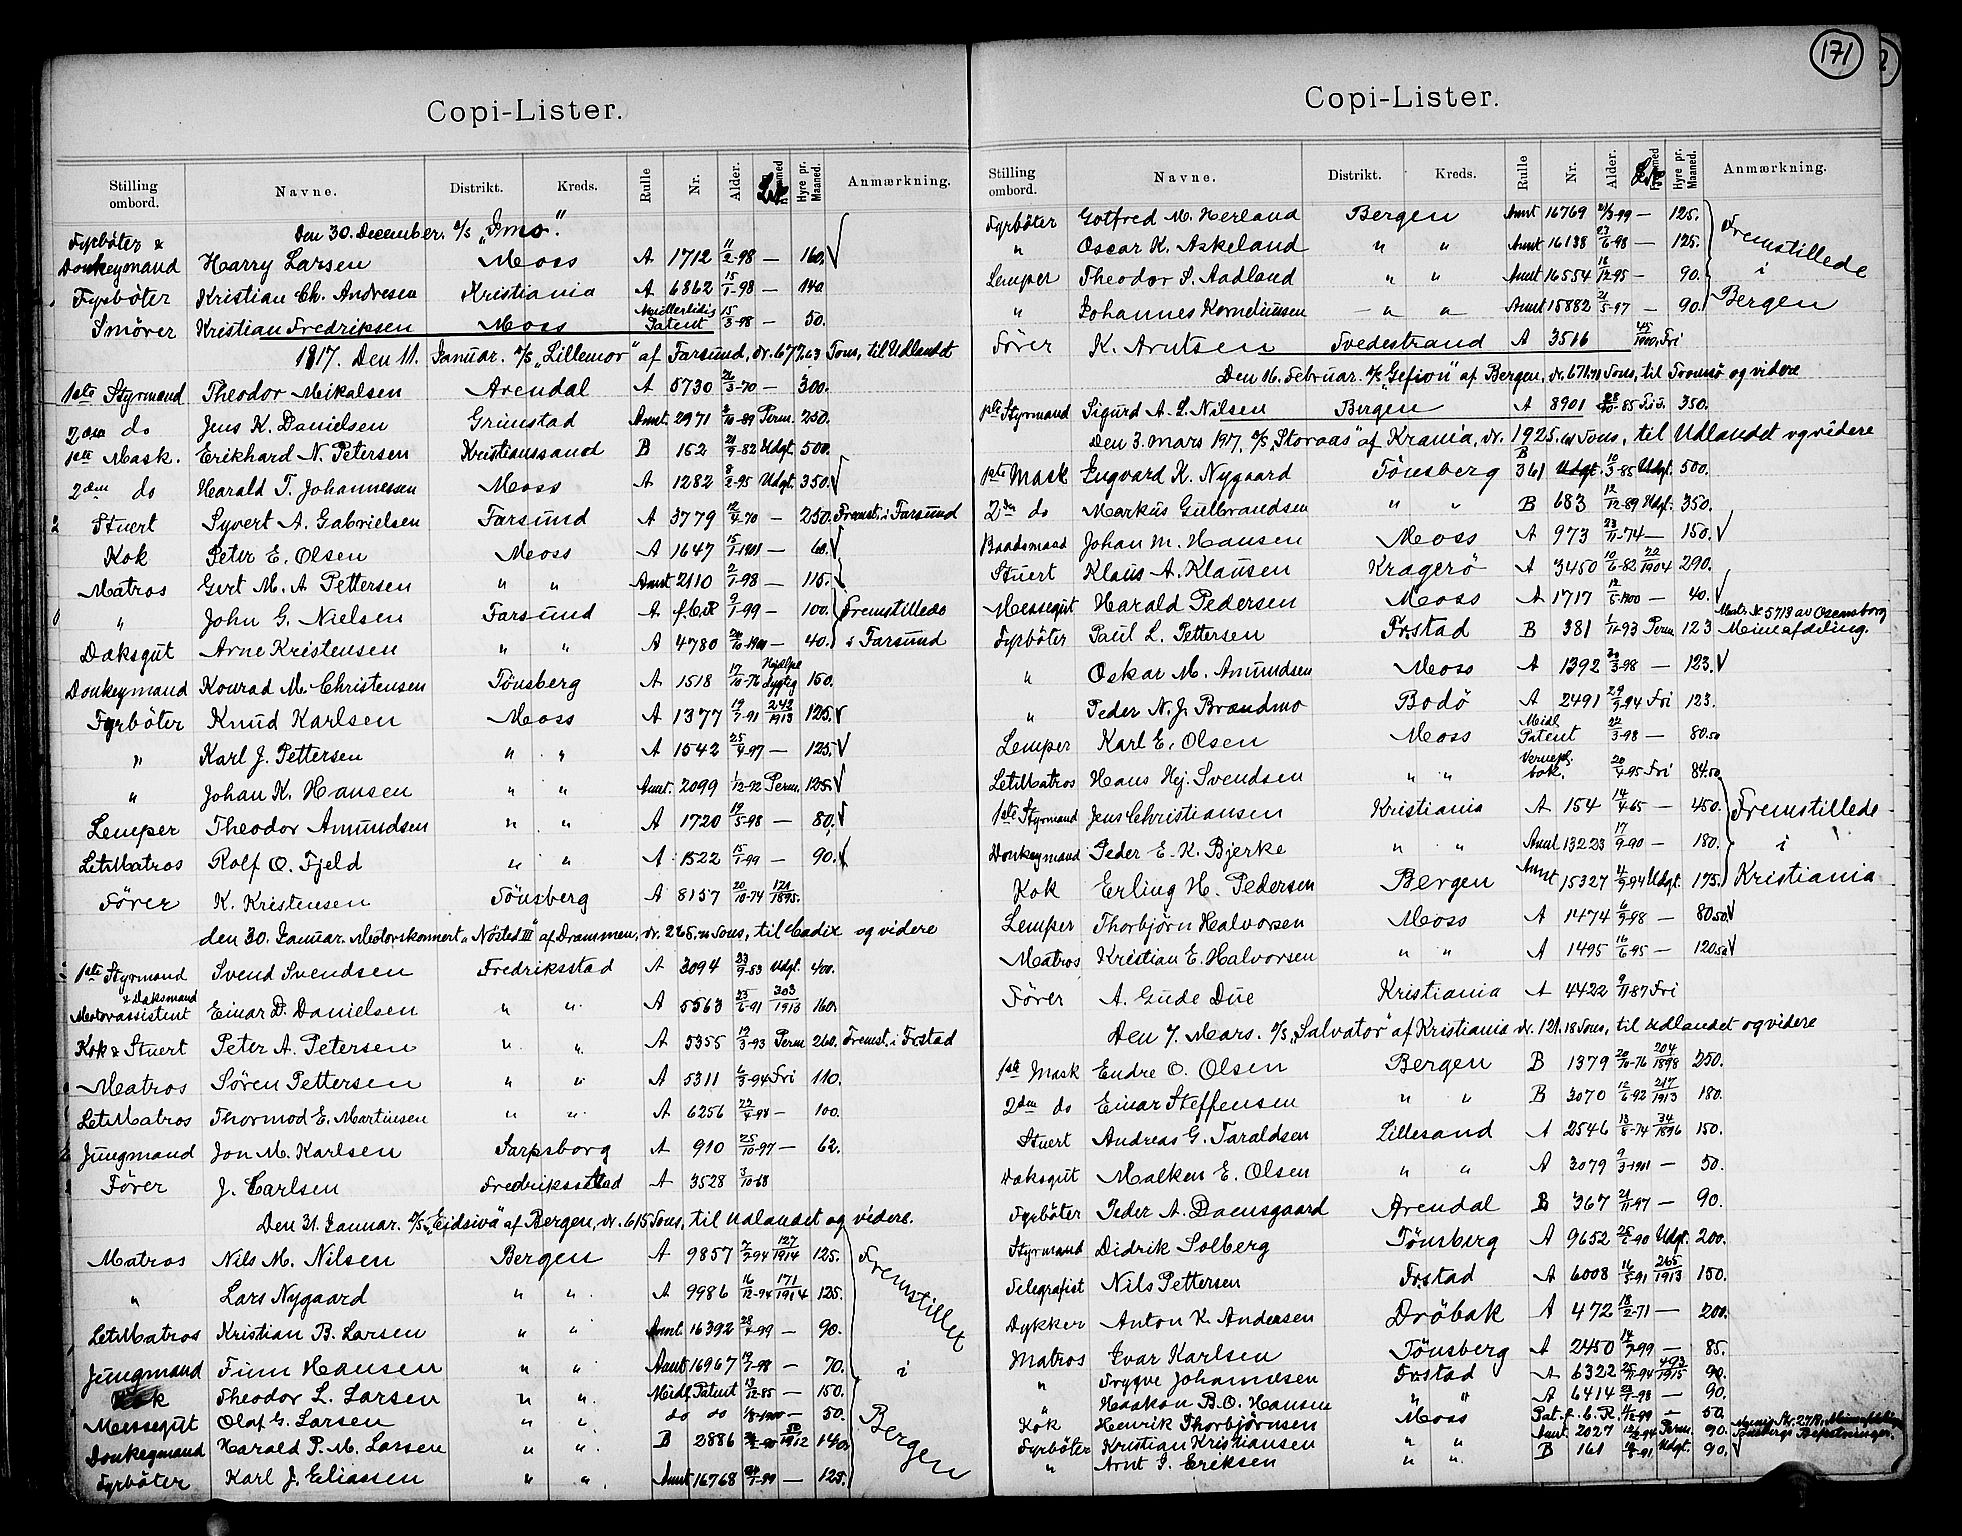 Copi-Lister.
Stilling ombord. Navne. Distrikt. Kreds. Rulle Nr. Alder. Hyre pr. Maaned. Anmærkning.
Den 30. December. D/S „Imo".
Fyrböter &
Donkeymand Harry Larsen Moss A 1712 11/2-98 — 160.
Fyrböter Kristian Ch. Andresen Kristiania A 6862 15/1-98 — 140
Smörer Kristian Fredriksen Moss Patent 15/3-98 — 50.
1917. Den 11. Januar. D/S „Lillemor" af Farsund, dr. 677,63 Tons, til Udlandet
1ste Styrmand Theodor Mikalsen Arendal A 5730 26/3-70 — 300.
2den do Jens K. Danielsen Grimstad Annt. 2971 2/10-89 Perm. 250.
1ste Mask. Erikhard N. Petersen Kristianssand B 152 21/9-82 Udgt. 500.
2den do Harald T. Johannessen Moss A 1282 8/2-95 Udgt. 350.
Stuert Syvert A. Gabrielsen Farsund A 3779 12/4-70 — 250. Fremst. i Farsund
Kok Peter E. Olsen Moss A 1647 15/1-1901 — 60.
Matros Gert M. A. Pettersen " " Annt 2110 2/1-98 — 115.
" John G. Nielsen Farsund A 9/1-99 — 100. Fremstillede
Daksgut Arne Kristensen " " A 4780 — 40. i Farsund
Donkeymand Konrad M. Christensen Tönsberg A 1518 17/10-76 Hjælpe dygtig 150.
Fyrböter Knud Karlsen Moss A 1377 19/7-91 242/1913 125.
" Karl J. Pettersen " " A 1542 25/4-97 — 125.
" Johan K. Hansen " " Annt. 2099 1/12-92 Perm. 125.
Lemper Theodor Amundsen " " A 1720 19/5-98 — 80.
LetMatros Rolf O. Fjeld " " A 1522 15/1-99 — 90.
Förer K. Kristensen Tönsberg A 8157 20/10-74 121/1895.
den 30. Januar. Motorskonnert „Nösted III" af Drammen, dr. 265. Tons, til Cadix og videre
1ste Styrmand Svend Svendsen Fredriksstad A 3094 23/9-83 Udgt. 400.
& Daksmand
Motorassistent Einar D. Danielsen " " A 5563 25/6-91 303/1913 160.
Kok & Stuert Peter A. Petersen " " A 5355 19/3-93 Perm 260. Fremst. i Frstad
Matros Sören Pettersen " " A 5311 6/3-94 Fri 110.
LetMatros Thormod E. Martinsen " " A 6256 22/4-98 — 100.
Jungmand Jon M. Karlsen Sarpsborg A 910 25/10-97 — 62.
Förer J. Carlsen Fredriksstad A 3528 3/10-68
Den 31. Januar. D/S „Eidsiva" af Bergen, dr. 615 Tons, til Udlandet og videre.
Matros Nils M. Nilsen Bergen A 9857 7/7-94 127/1914 125.
" Lars Nygaard " " A 9986 16/12-94 171/1914 125.
LetMatros Kristian B. Larsen " " Annt 16392 28/4-99 — 90.
Jungmand Finn Hansen " " Annt 16967 19/7-98 — 70.
Kok Theodor L. Larsen " " Midl. Patent 13/12-85 — 150.
Messegut Olaf G. Larsen " " do do 1/8-1900 — 50.
Donkeymand Harald P. M. Larsen " " B 2886 1912 140.
Fyrböter Karl J. Eliassen " " Annt 16768 — 125.
Fremstillet i Bergen
171
Copi-Lister.
Stilling ombord. Navne. Distrikt. Kreds. Rulle Nr. Alder. Hyre pr. Maaned. Anmærkning.
Fyrböter Gotfred M. Herland Bergen Annt 16769 21/3-99 — 125.
" Oscar K. Askeland " " Annt 16138 23/6-98 — 125.
Lemper Theodor S. Aadland " " Annt 16554 18/12-95 — 90.
" Johannes Korneliussen " " Annt 15882 21/5-97 — 90.
Fremstillede i Bergen
Förer K. Arntsen Tvedestrand A 3516 45/1900. Fri
Den 16. Februar. D/S „Gefion" af Bergen, dr. 671.71 Tons, til Tromsö og videre
1ste Styrmand Sigurd A. L. Nilsen Bergen A 8901 28/10-85 Fri. 350.
Den 3. Mars 1917, D/S „Storaas" af Krania, dr. 1925. Tons, til Udlandet og videre
1ste Mask Engvard K. Nygaard Tönsberg B 361 Udgt. 10/3-85 Udgt. 500.
2den do Markus Gulbrandsen " " B 683 12/12-89 Udgt. 350.
Baadsmand Johan M. Hansen Moss A 973 23/11-74 — 150.
Stuert Klaus A. Klausen Kragerö A 3450 10/6-82 20/1904 290.
Messegut Harald Pedersen Moss A 1717 12/5-1900 — 40.
Fyrböter Paul L. Pettersen Frstad B 381 1/11-93 Perm 123 Matr. № 5713 av Oscarsborg Mineafdeling.
" Oskar M. Amundsen Moss A 1392 30/3-98 — 123.
" Peder N. J. Brandmo Bodö A 2491 29/9-94 Fri 123.
Lemper Karl E. Olsen Moss Midl Patent 22/3-98 — 80.50
LetMatros Hans Hj. Svendsen " " Vernepl. bok. 20/4-95 Fri 84.50
1ste Styrmand Jens Christiansen Kristiania A 154 14/4-65 — 450. Fremstillede
Donkeymand Peder E. K. Bjerke " " Annt 13223 17/9-90 — 180. i
Kok Erling H. Pedersen Bergen Annt 15327 4/9-94 Udgt. 175. Kristiania
Lemper Thorbjörn Halvorsen Moss A 1474 6/9-98 — 80.50
Matros Kristian E. Halvorsen " " A 1495 16/6-95 — 120.50
Förer A. Gude Due Kristiania A 4422 9/11-87 Fri
Den 7. Mars. D/S „Salvator" af Kristiania dr. 121.18 Tons, til Udlandet og videre
1ste Mask Endre O. Olsen Bergen B 1379 20/10-76 204/1898 250.
2den do Einar Steffensen " " B 3070 12/6-92 217/1913 180.
Stuert Andreas G. Taraldsen Lillesand A 2546 13/8-74 34/1896 150.
Daksgut Malken E. Olsen " " A 3079 9/3-1901 — 50.
Fyrböter Peder A. Daensgaard Arendal B 367 21/11-97 — 90.
Styrmand Didrik Solberg Tönsberg A 9652 25/6-90 Udgt. 200.
Telegrafist Nils Pettersen Frstad A 6008 16/5-91 265/1913 150.
Dykker Anton K. Andersen Dröbak A 472 18/2-71 — 200.
Matros Ivar Karlsen Tönsberg A 2450 14/7-99 — 85.
" Trygve Johannesen Frstad A 6322 25/11-94 493/1915 90.
" Haakon B. O. Hansen " " A 6414 23/1-98 — 90.
Kok Henrik Thorbjörnsen Moss Pat. f. C. R. — 50.
Fyrböter Kristian Kristiansen " " Annt 2027 Perm. 90.
" Arnt I. Eriksen " " B 161 Udgt. 90.